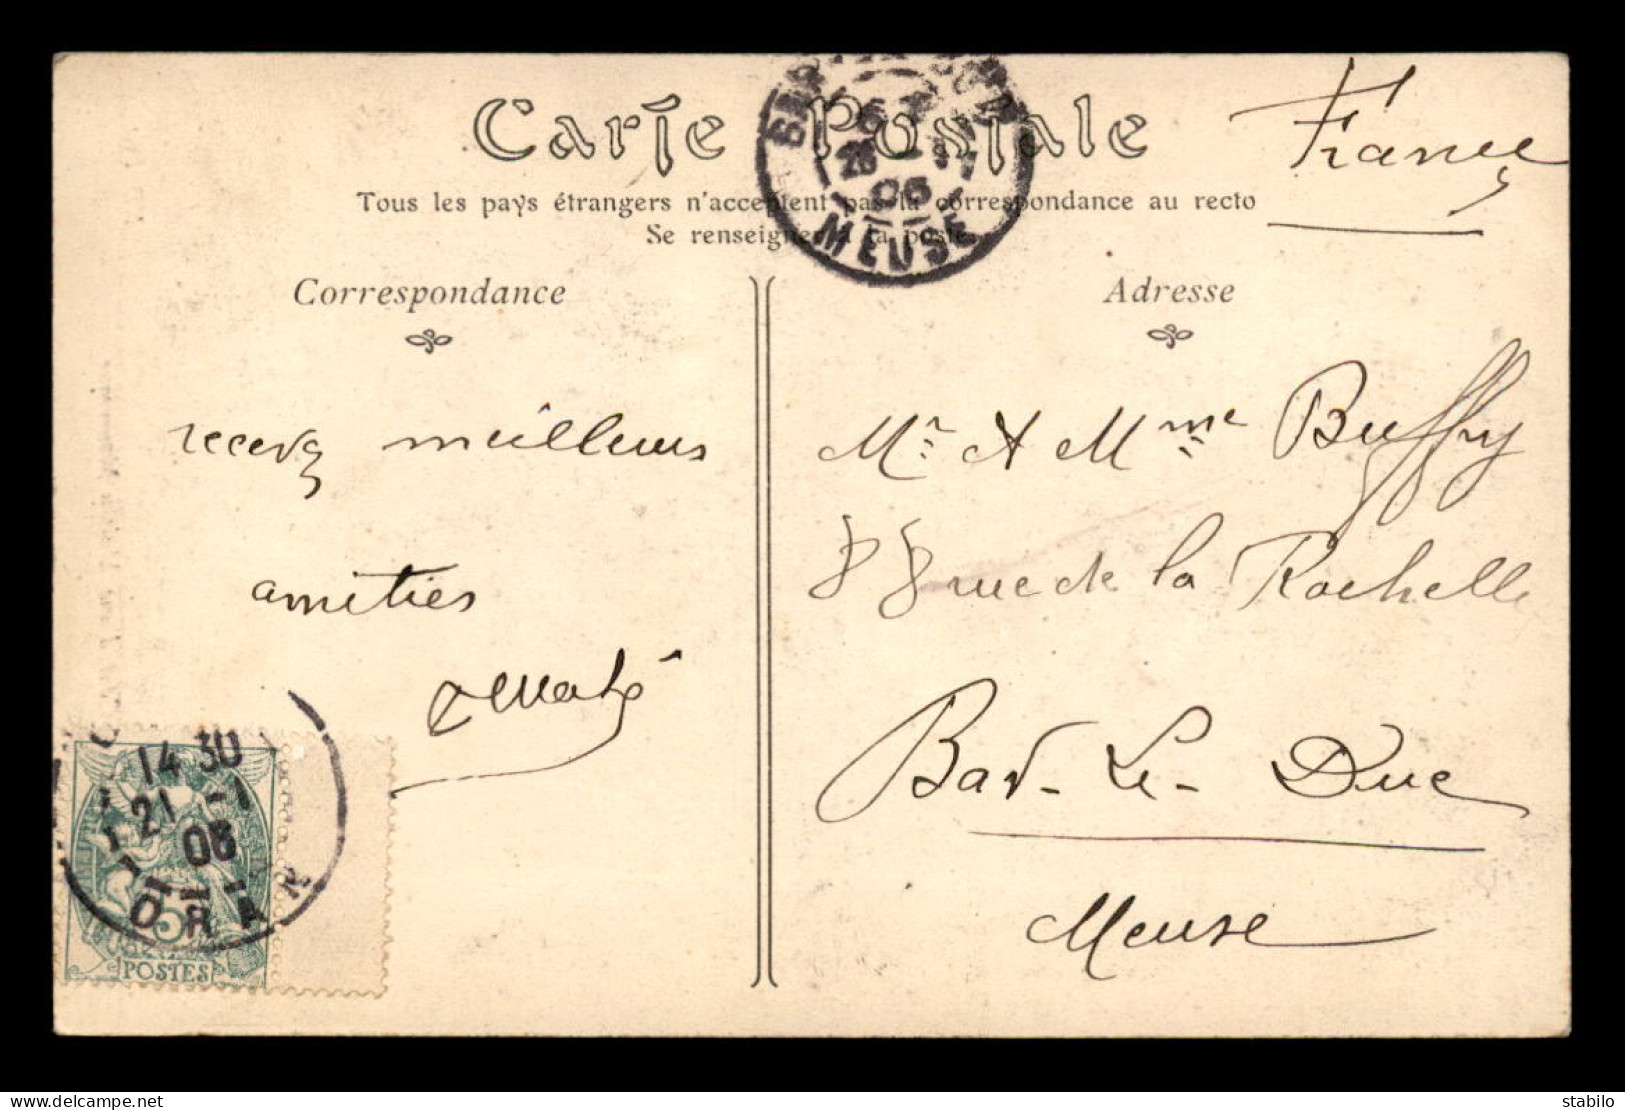 Carte Postale
France
Tous les pays étrangers n'acceptent pas la correspondance au recto
Se renseigner à la poste
Correspondance
Adresse
recevez meilleurs
amitiés
Mr & Mme Buffry
88 rue de la Rochelle
Bar-Le-Duc
Meuse
26
06
MEUSE
14 30
21 -1
06
ORAN
5
POSTES
www.delcampe.net
stabilo